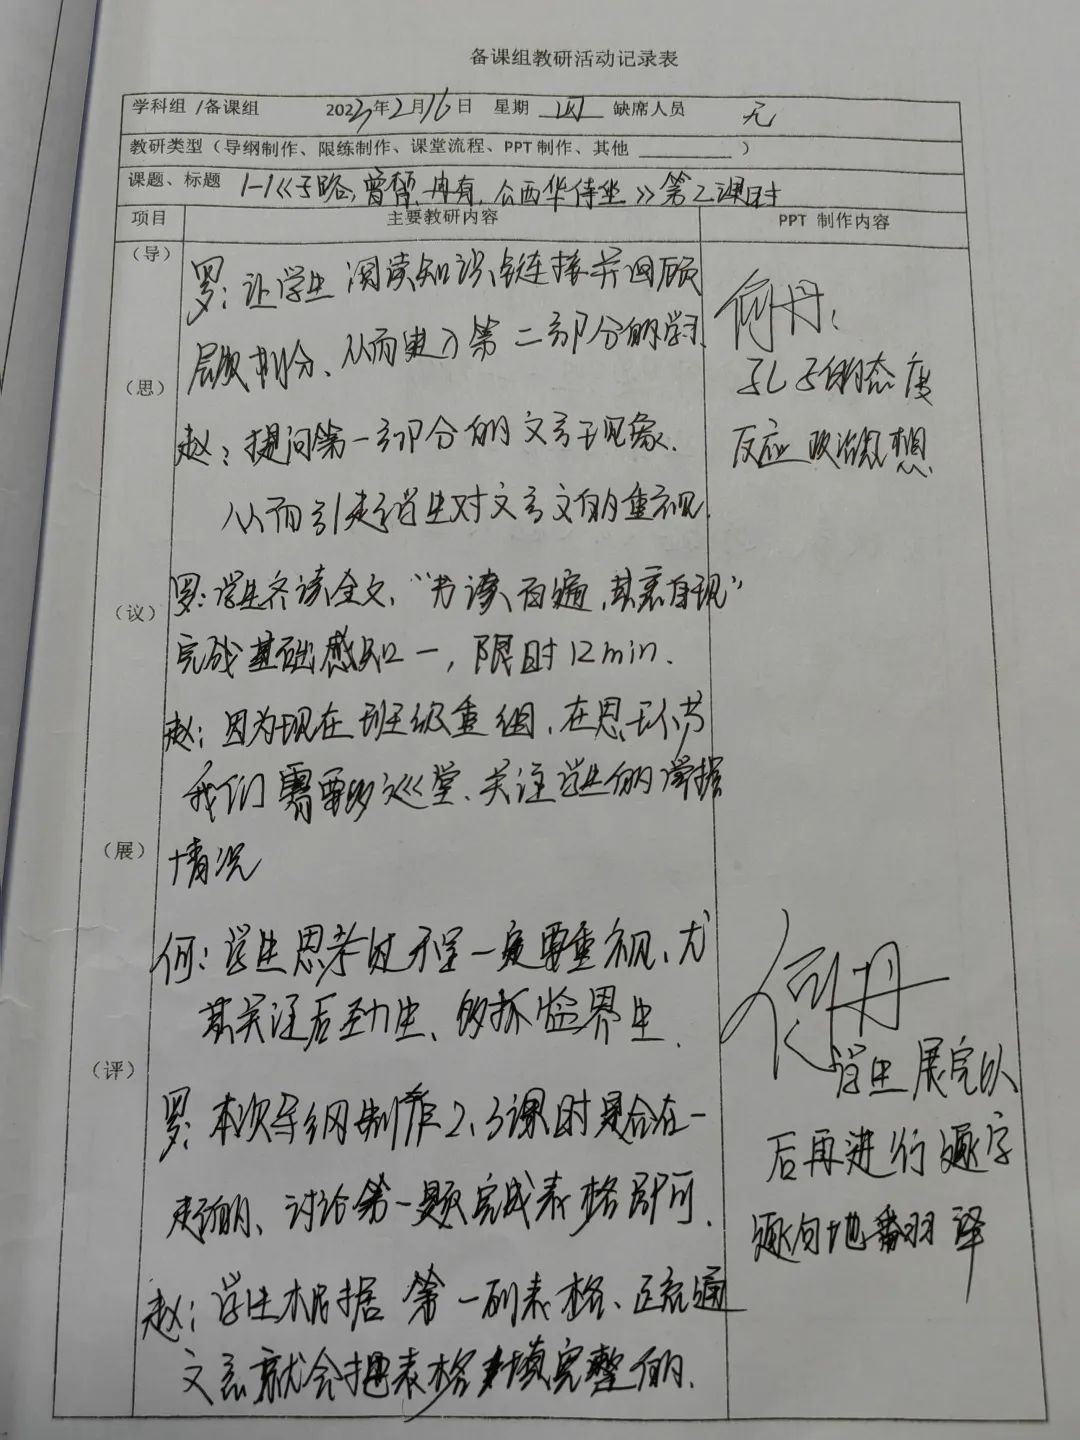 备课组教研活动记录表
学科组 /备课组 2023年2月16日 星期 四 缺席人员 无
教研类型（导纲制作、限练制作、课堂流程、PPT 制作、其他 ________ ）
课题、标题 1-1《子路、曾皙、冉有、公西华侍坐》第2课时
项目 主要教研内容 PPT 制作内容
（导）
罗：让学生阅读知识链接并回顾
层次划分、从而进入第二部分的学习
（思）
赵：提问第一部分的文言现象.
从而引起学生对文言文的重视.
（议）
罗：学生齐读全文、“书读百遍，其意自现”
完成基础感知一，限时12min.
赵：因为现在班级重组、在思环节
我们需要多巡堂、关注学生的掌握
（展）
情况
何：学生思考过程一定要重视、尤
其关注后劲生、多抓临界生.
（评）
罗：本次导纲制作2、3课时是合在一
起的、讨论第一题完成表格即可.
赵：学生根据第一列表格、疏通
文意就会把表格填完整的.
何丹：
孔子的态度
反应政治思想
何丹
学生展完以
后再进行逐字
逐句地翻译